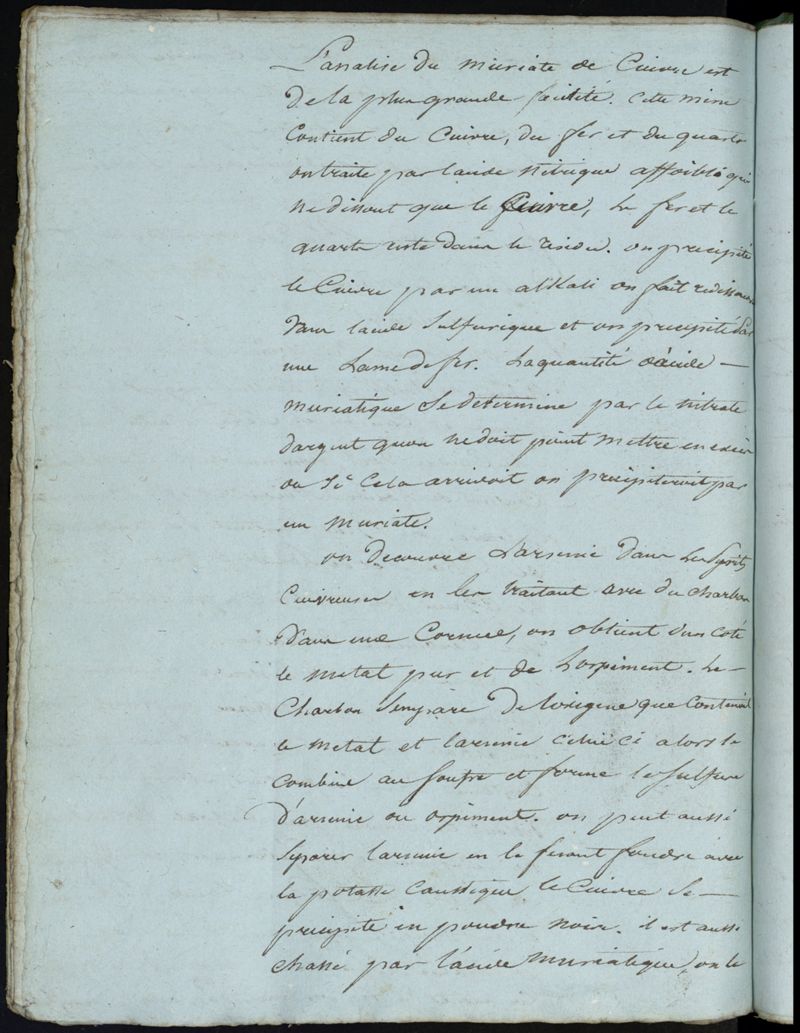 L'analise du muriate de Cuivre est
de la plus grande facilité. Cette mine
Contient du Cuivre, du fer et du quartz
on traite par lacide nitrique affoibli qui
ne dissout que le Cuivre, le fer et le
quartz reste dans le residu. on precipite
le Cuivre par un alkali on fait redissoudre
dans lacide Sulfurique et on precipite par
une Lame de fer. La quantité d'acide —
muriatique Se determine par le nitrate
dargent quon ne doit point mettre en exces
ou Si Cela arrivoit on precipiteroit par
un muriate.
on decouvre Larsenic dans les pyrites
Cuivreuses en les traitant avec du charbon
dans une Cornue, on obtient d'un coté
le metal pur et de Lorpiment. Le
Charbon S'empare de loxigene que Contenoit
le metal et larsenic celui ci alors se
Combine au Soufre et forme le Sulfure
d'arsenic ou orpiment. on peut aussi
Separer larsenic en le fesant fondre avec
la potasse Caustique le Cuivre Se —
precipite en poudre noire. il est aussi
chassé par l'acide muriatique, on le